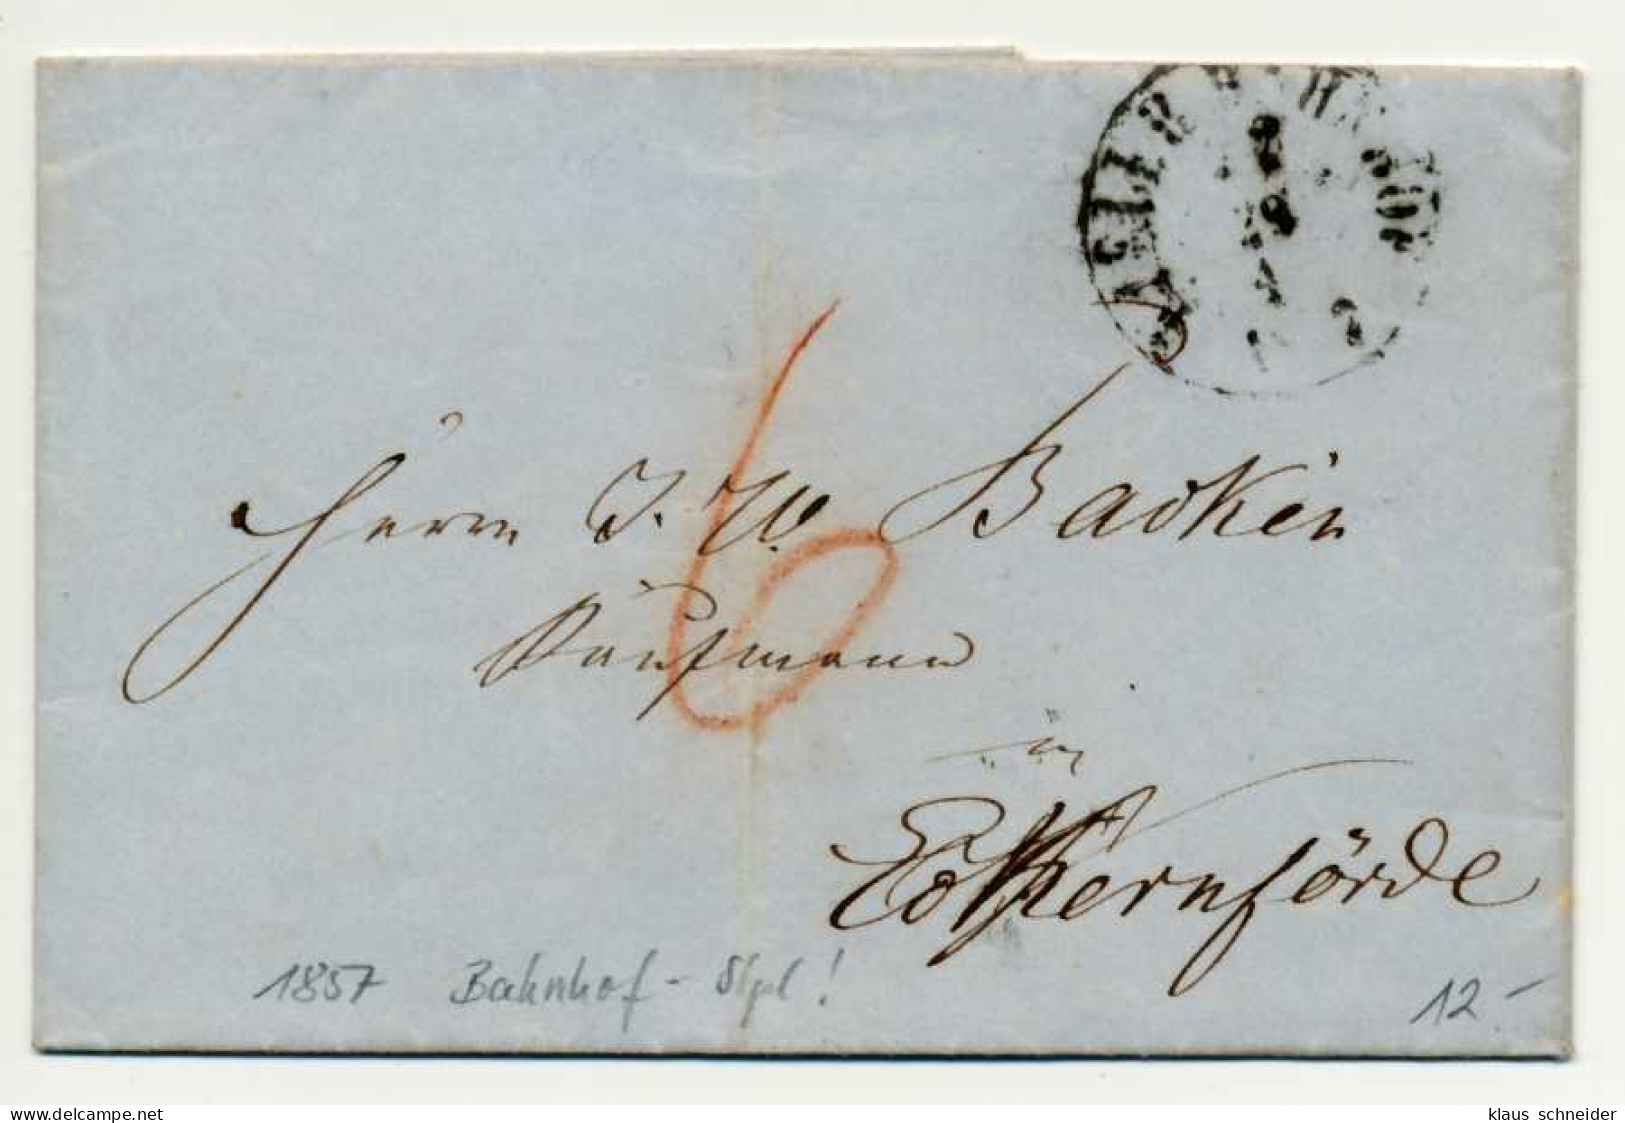 BAHNHOF
6
Herrn J. W. Backen
Kaufmann
in
Eckernförde
1857 Bahnhof - Stpl!
12.-
www.delcampe.net
klaus schneider